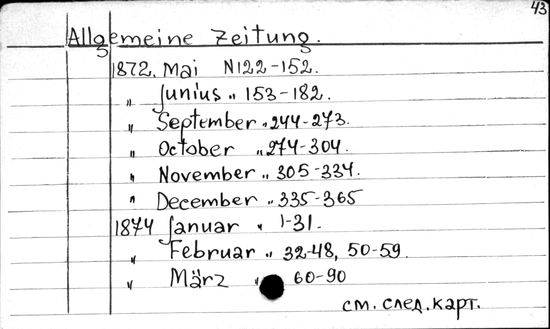 43
Allgemeine Zeitung.
1872. Mai N122-152.
„ Junius „ 153-182.
„ September „ 244-273.
„ October „ 274-304.
„ November „ 305-334.
„ December „ 335-365
1874 Januar „ 1-31.
„ Februar „ 32-48, 50-59.
„ März „ 60-90
см. след. карт.